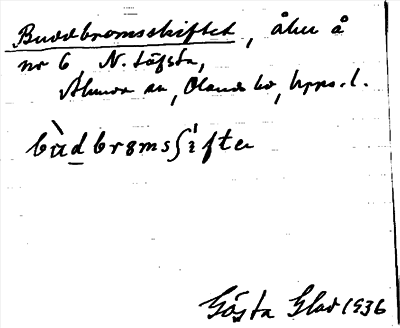 Buddbromsskiftet, åker å
nr 6 N. Löfsta,
Ålunda sn, Olands hd, Upps. l.
bùdbromsʃìftet
Gösta Glad 1936